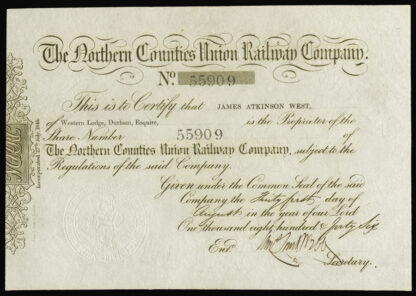 The Northern Counties Union Railway Company.
No. 55909
This is to Certify that JAMES ATKINSON WEST,
of Western Lodge, Durham, Esquire, is the Proprietor of the
Share Number 55909 of
The Northern Counties Union Railway Company, subject to the
Regulations of the said Company.
Given under the Common Seal of the said
Company the Thirty first day of
August in the year of our Lord
One thousand eight hundred & forty Six
Entd.
Secretary.
Incorporated 27th July, 1846.